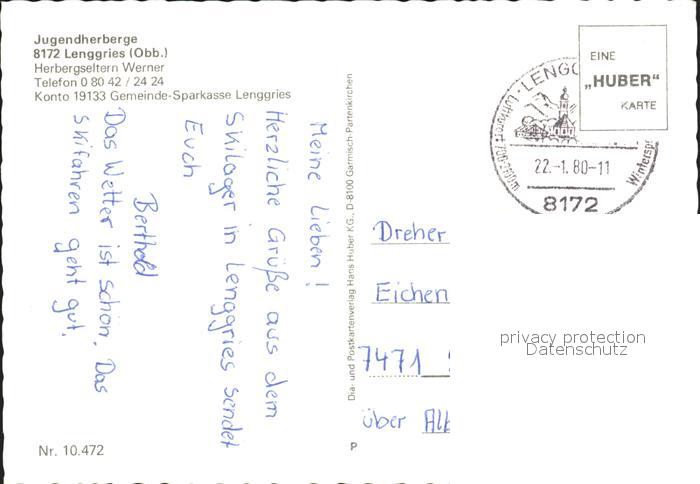 Jugendherberge
8172 Lenggries (Obb.)
Herbergseltern Werner
Telefon 0 80 42 / 24 24
Konto 19133 Gemeinde-Sparkasse Lenggries
Meine Lieben!
Herzliche Grüße aus dem
Skilager in Lenggries sendet
Euch
Berthold
Das Wetter ist schön. Das
Skifahren geht gut.
Nr. 10.472
Dia- und Postkartenverlag Hans Huber KG., D-8100 Garmisch-Partenkirchen
P
EINE
„HUBER“
KARTE
LENGG
Luftkurort 700-1700m
Winterspo
22.-1.80-11
8172
Dreher
Eichen
7471
über Alb
privacy protection
Datenschutz